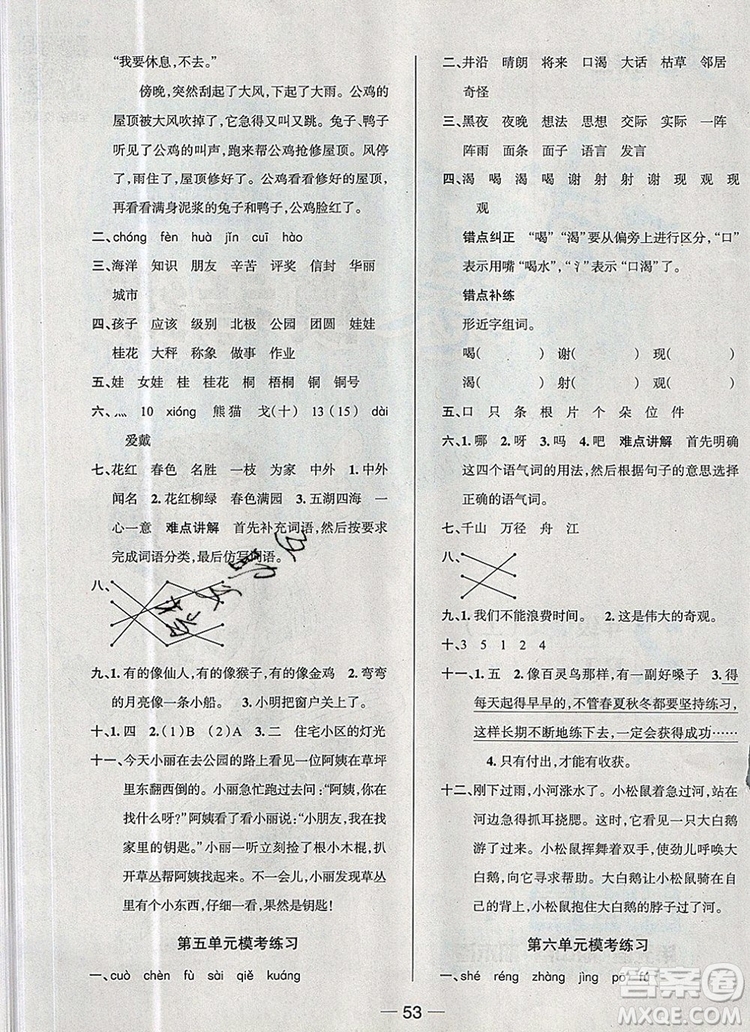 “我要休息，不去。”
傍晚，突然刮起了大风，下起了大雨。公鸡的
屋顶被大风吹掉了，它急得又叫又跳。兔子、鸭子
听见了公鸡的叫声，跑来帮公鸡抢修屋顶。风停
了，雨住了，屋顶修好了。公鸡看看修好的屋顶，
再看看满身泥浆的兔子和鸭子，公鸡脸红了。
二、chóng fèn huà jīn cuī hào
三、海洋 知识 朋友 辛苦 评奖 信封 华丽
城市
四、孩子 应该 级别 北极 公园 团圆 娃娃
桂花 大秤 称象 做事 作业
五、娃 女娃 桂 花桂 桉 桉树 梧 梧桐 铜 铜号
六、灬 10 xióng 熊猫 戈(十) 13(15) dài
爱戴
七、花红 春色 名胜 一枝 为家 中外 1.中外
闻名 2.花红柳绿 春色满园 3.五湖四海 一
心一意 难点讲解 首先补充词语，然后按要求
完成词语分类，最后仿写词语。
八、
九、1.有的像仙人，有的像猴子，有的像金鸡 2.弯弯
的月亮像一条小船。 3.小明把窗户关上了。
十、1.四 2.(1)B (2)A 3.二 住宅小区的灯光
十一、今天小丽在去公园的路上看见一位阿姨在草坪
里东翻西倒的。小丽急忙跑过去问：“阿姨，你在
找什么呀？”阿姨说：“小朋友，我在找
家里的钥匙。”小丽听了立刻捡了根小木棍，扒
开草丛帮阿姨找起来。忽然，小丽发现草丛里
有个小东西，仔细一看，果然是钥匙！
第五单元模考练习
一、cuò chèn fù sài qiě kuáng
二、井沿 晴朗 将来 口渴 大话 枯草 邻居
奇怪
三、黑夜 夜晚 想法 思想 交际 实际 一阵
阵雨 面条 面子 语言 发言
四、渴 喝 喝 渴 谢 射 射 谢 现 观 观 现 现
观
错点纠正 “喝”“渴”要从偏旁上进行区分，“口”
表示用嘴“喝水”，“氵”表示“口渴”了。
错点补练
形近字组词。
喝( ) 谢( ) 现( )
渴( ) 射( ) 观( )
五、口 只 条 根 片 个 朵 位 件
六、1.哪 2.呀 3.吗 4.吧 难点讲解 首先明确
这四个语气词的用法，然后根据句子的意思选择
正确的语气词。
七、千山 万径 舟 江
八、
九、1.我们不能浪费时间。 2.这是伟大的奇观。
十、3 5 1 2 4
十一、1.五 2.像百灵鸟那样，有一副好嗓子 3.得
每天起得早早的，不管春夏秋冬都要坚持练习，
这样长期不断地练下去，一定会获得成功……
4.只有付出，才能有收获。
十二、刚下过雨，小河涨水了。小松鼠着急过河，站在
河边急得抓耳挠腮。忽然，它看见大白鹅在河里
游了过来。小松鼠挥舞着双手，使劲儿呼唤大
白鹅，向它寻求帮助。大白鹅让小松鼠站在自
己的背上，小松鼠抱着大白鹅的脖子过了河。
第六单元模考练习
一、shé réng zhàng jìng
53
答案圈
MXQE.COM